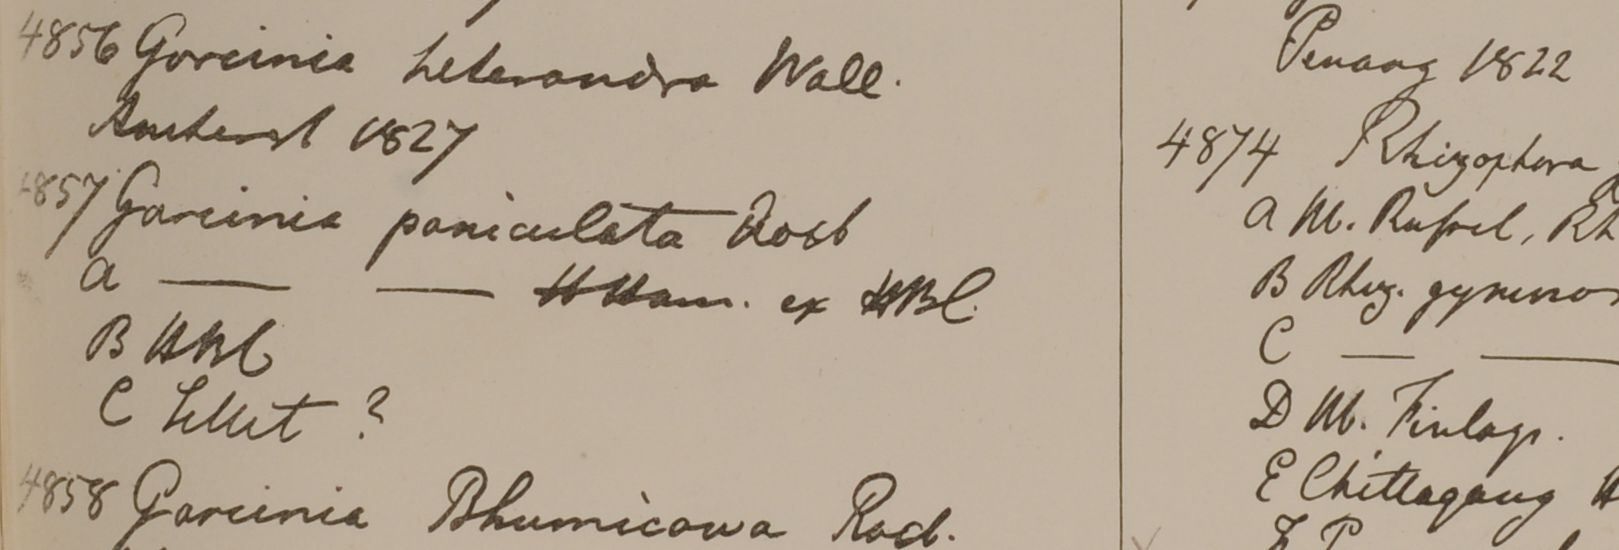 4856 Garcinia heterandra Wall.
Amherst 1827
4857 Garcinia paniculata Roxb
a — — HHam. ex HBC.
B HBC
C Sillet ?
4858 Garcinia Bhumicowa Roxb.
Penang 1822
4874 Rhizophora
a M. Rufsel, Rh
B Rhiz. gymnor
C — —
D M. Finlays.
E Chittagong H